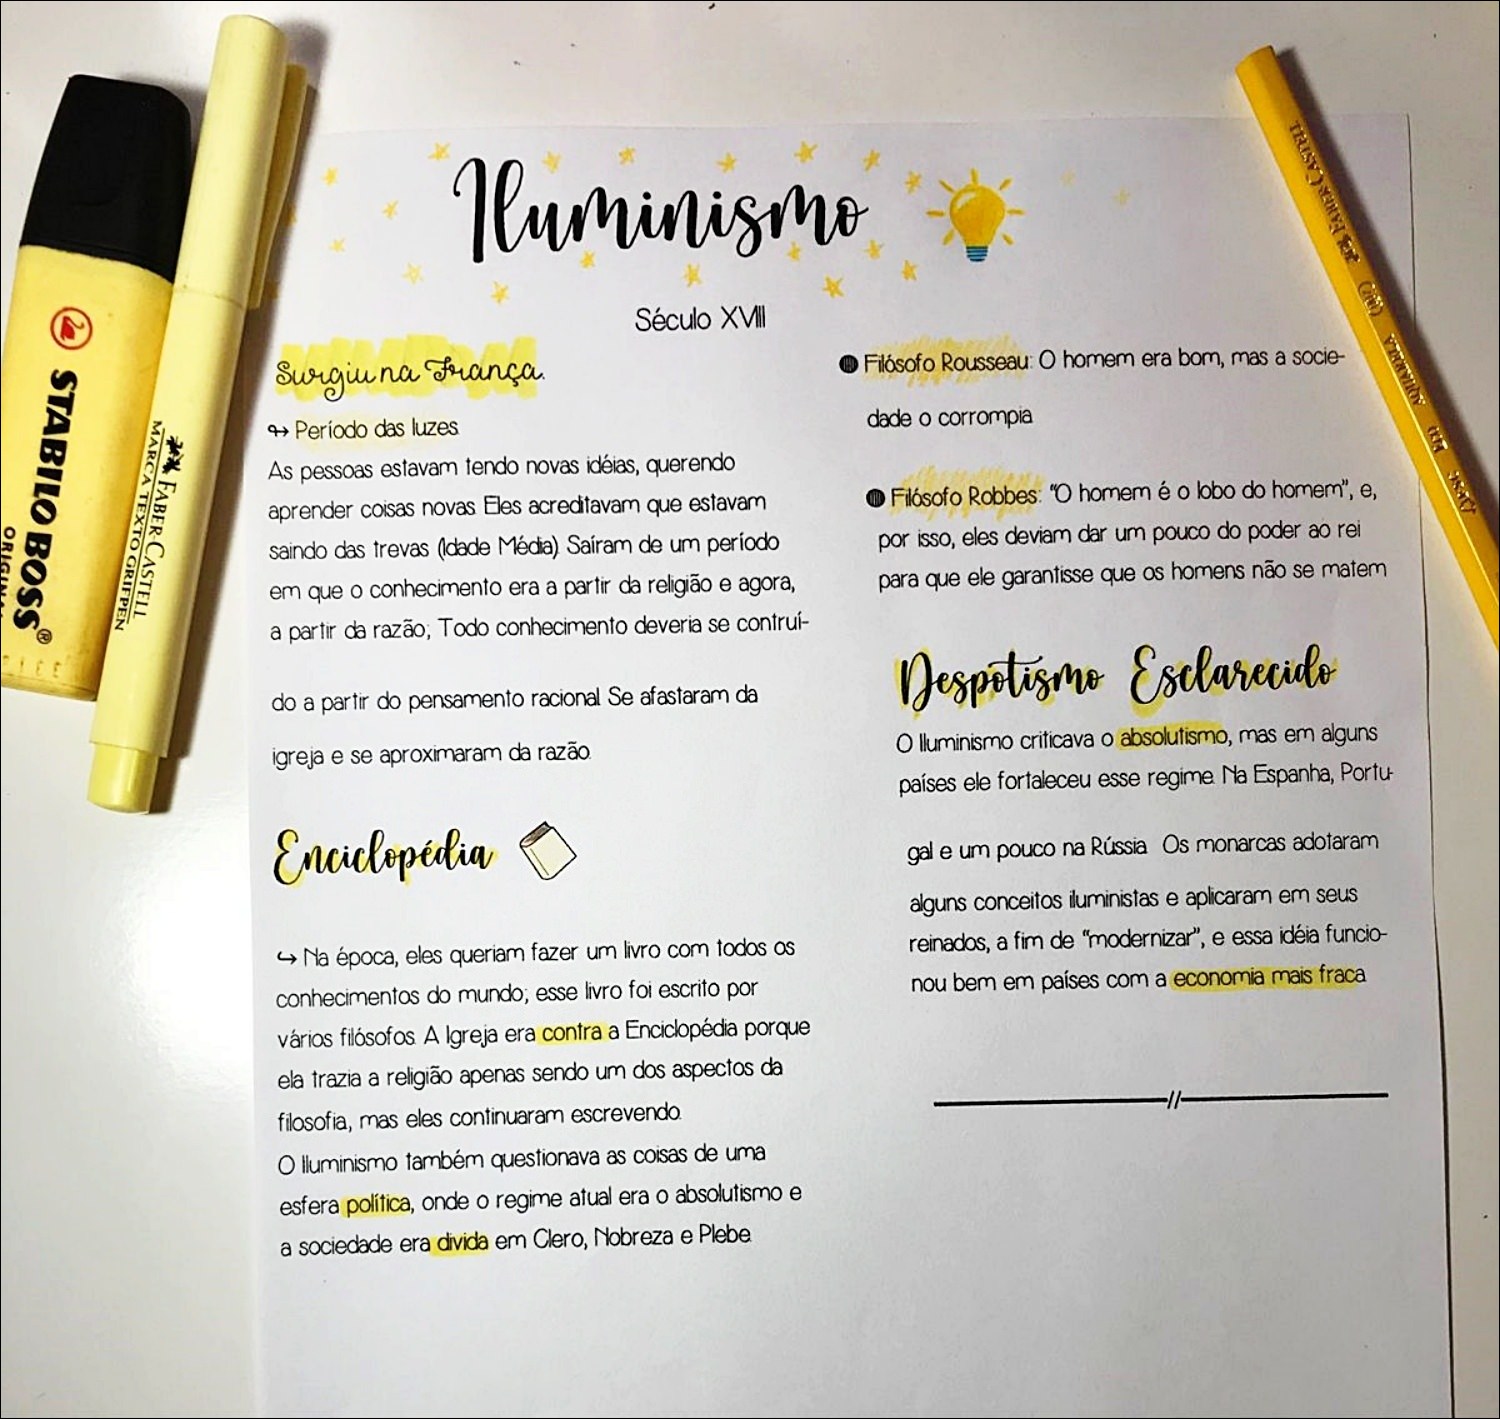 Iluminismo
Século XVIII
Surgiu na França.
↬ Período das luzes.
As pessoas estavam tendo novas idéias, querendo
aprender coisas novas. Eles acreditavam que estavam
saindo das trevas (Idade Média). Saíram de um período
em que o conhecimento era a partir da religião e agora,
a partir da razão; Todo conhecimento deveria se contruí-
do a partir do pensamento racional. Se afastaram da
igreja e se aproximaram da razão.
Enciclopédia
↪ Na época, eles queriam fazer um livro com todos os
conhecimentos do mundo; esse livro foi escrito por
vários filósofos. A Igreja era contra a Enciclopédia porque
ela trazia a religião apenas sendo um dos aspectos da
filosofia, mas eles continuaram escrevendo.
O Iluminismo também questionava as coisas de uma
esfera política, onde o regime atual era o absolutismo e
a sociedade era divida em Clero, Nobreza e Plebe.
Filósofo Rousseau: O homem era bom, mas a socie-
dade o corrompia
Filósofo Robbes: "O homem é o lobo do homem", e,
por isso, eles deviam dar um pouco do poder ao rei
para que ele garantisse que os homens não se matem
Despotismo Esclarecido
O Iluminismo criticava o absolutismo, mas em alguns
países ele fortaleceu esse regime. Na Espanha, Portu-
gal e um pouco na Rússia. Os monarcas adotaram
alguns conceitos iluministas e aplicaram em seus
reinados, a fim de "modernizar", e essa idéia funcio-
nou bem em países com a economia mais fraca.
//
STABILO BOSS®
FABER-CASTELL
MARCA TEXTO GRIFPEN
FABER-CASTELL
AQUARELA